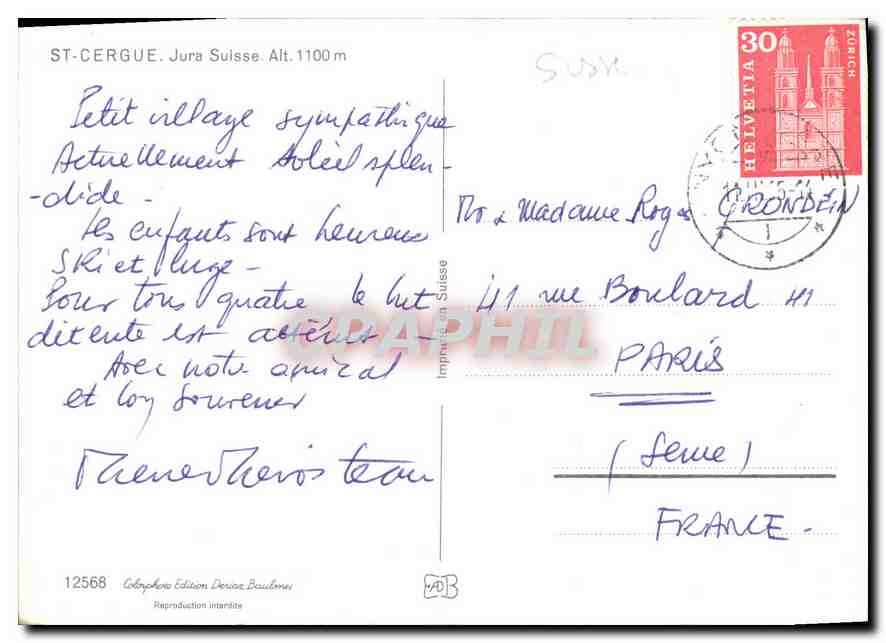 ST-CERGUE. Jura Suisse. Alt. 1100 m
Petit village sympathique
Actuellement soleil splen-
-dide -
Les enfants sont heureux
Ski et luge -
Pour tous quatre le but
détente est
Avec notre amical
et bon souvenir
Imprimé en Suisse
PAPHIL
30
HELVETIA
ZÜRICH
Mr & Madame Roger GRONDEIN
41 rue Boulard 41
PARIS
(Seine)
FRANCE -
12568 Colorphoto Edition Deriaz, Baulmes
Reproduction interdite